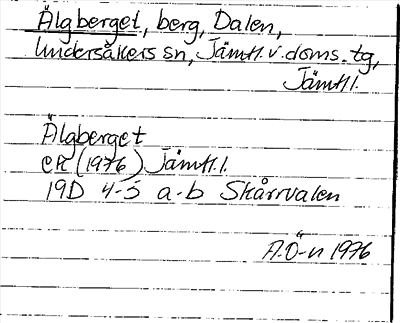 Älgberget, berg, Dalen,
Undersåkers sn, Jämtl. v. doms. tg,
Jämtl.
Älgberget
ek (1976) Jämtl.
19D 4-5 a-b Skårvalen
A.Ö-n 1976